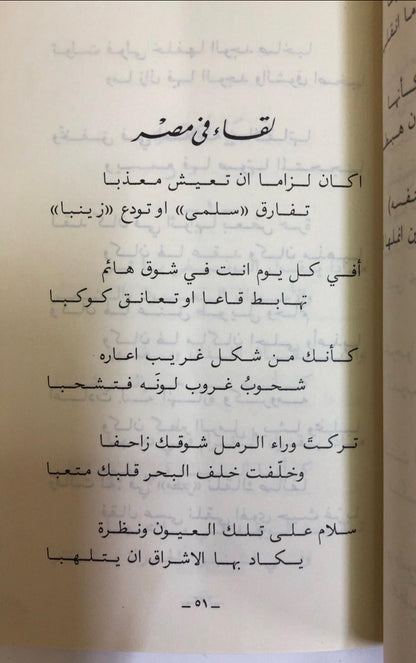 لقاء في مصر
اكان لزاما ان تعيش معذبا
تفارق «سلمى» او تودع «زينبا»
أفي كل يوم انت في شوق هائم
تهابط قاعا او تعانق كوكبا
كأنك من شكل غريب اعاره
شحوبُ غروب لونَه فتشحبا
تركتَ وراء الرمل شوقك زاحفا
وخلّفت خلف البحر قلبك متعبا
سلام على تلك العيون ونظرة
يكاد بها الاشراق ان يتلهبا
ـ ٥١ ـ